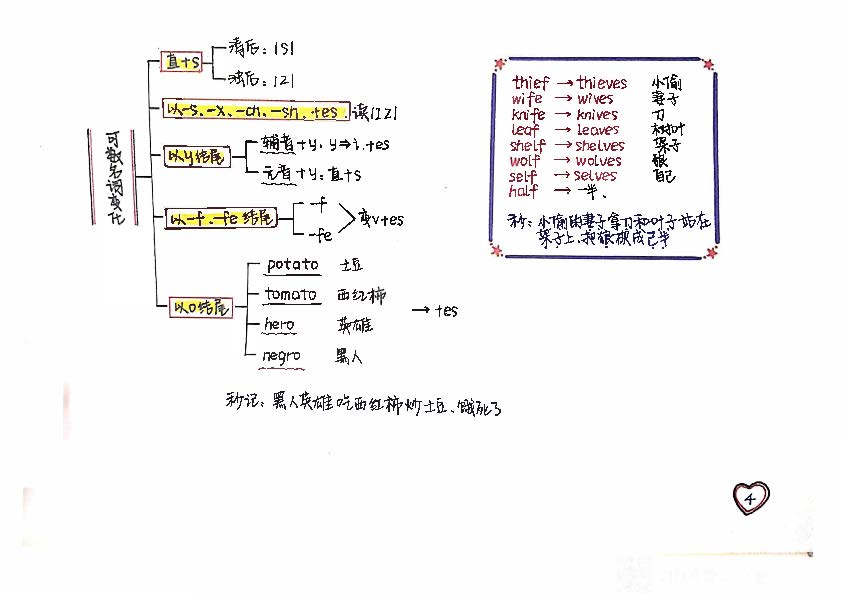 可数名词变化
直+s
清后：|s|
浊后：|z|
以-s、-x、-ch、-sh、+es.读|IZ|
以y结尾
辅音+y，y→i，+es
元音+y：直+s
以-f、-fe结尾
-f
-fe
变v+es
以o结尾
potato 土豆
tomato 西红柿
hero 英雄
negro 黑人
→ +es
秒记：黑人英雄吃西红柿炒土豆、饿死了
thief → thieves 小偷
wife → wives 妻子
knife → knives 刀
leaf → leaves 树叶
shelf → shelves 架子
wolf → wolves 狼
self → selves 自己
half → 一半.
秒：小偷的妻子拿刀和叶子站在
架子上，把狼砍成己半
4